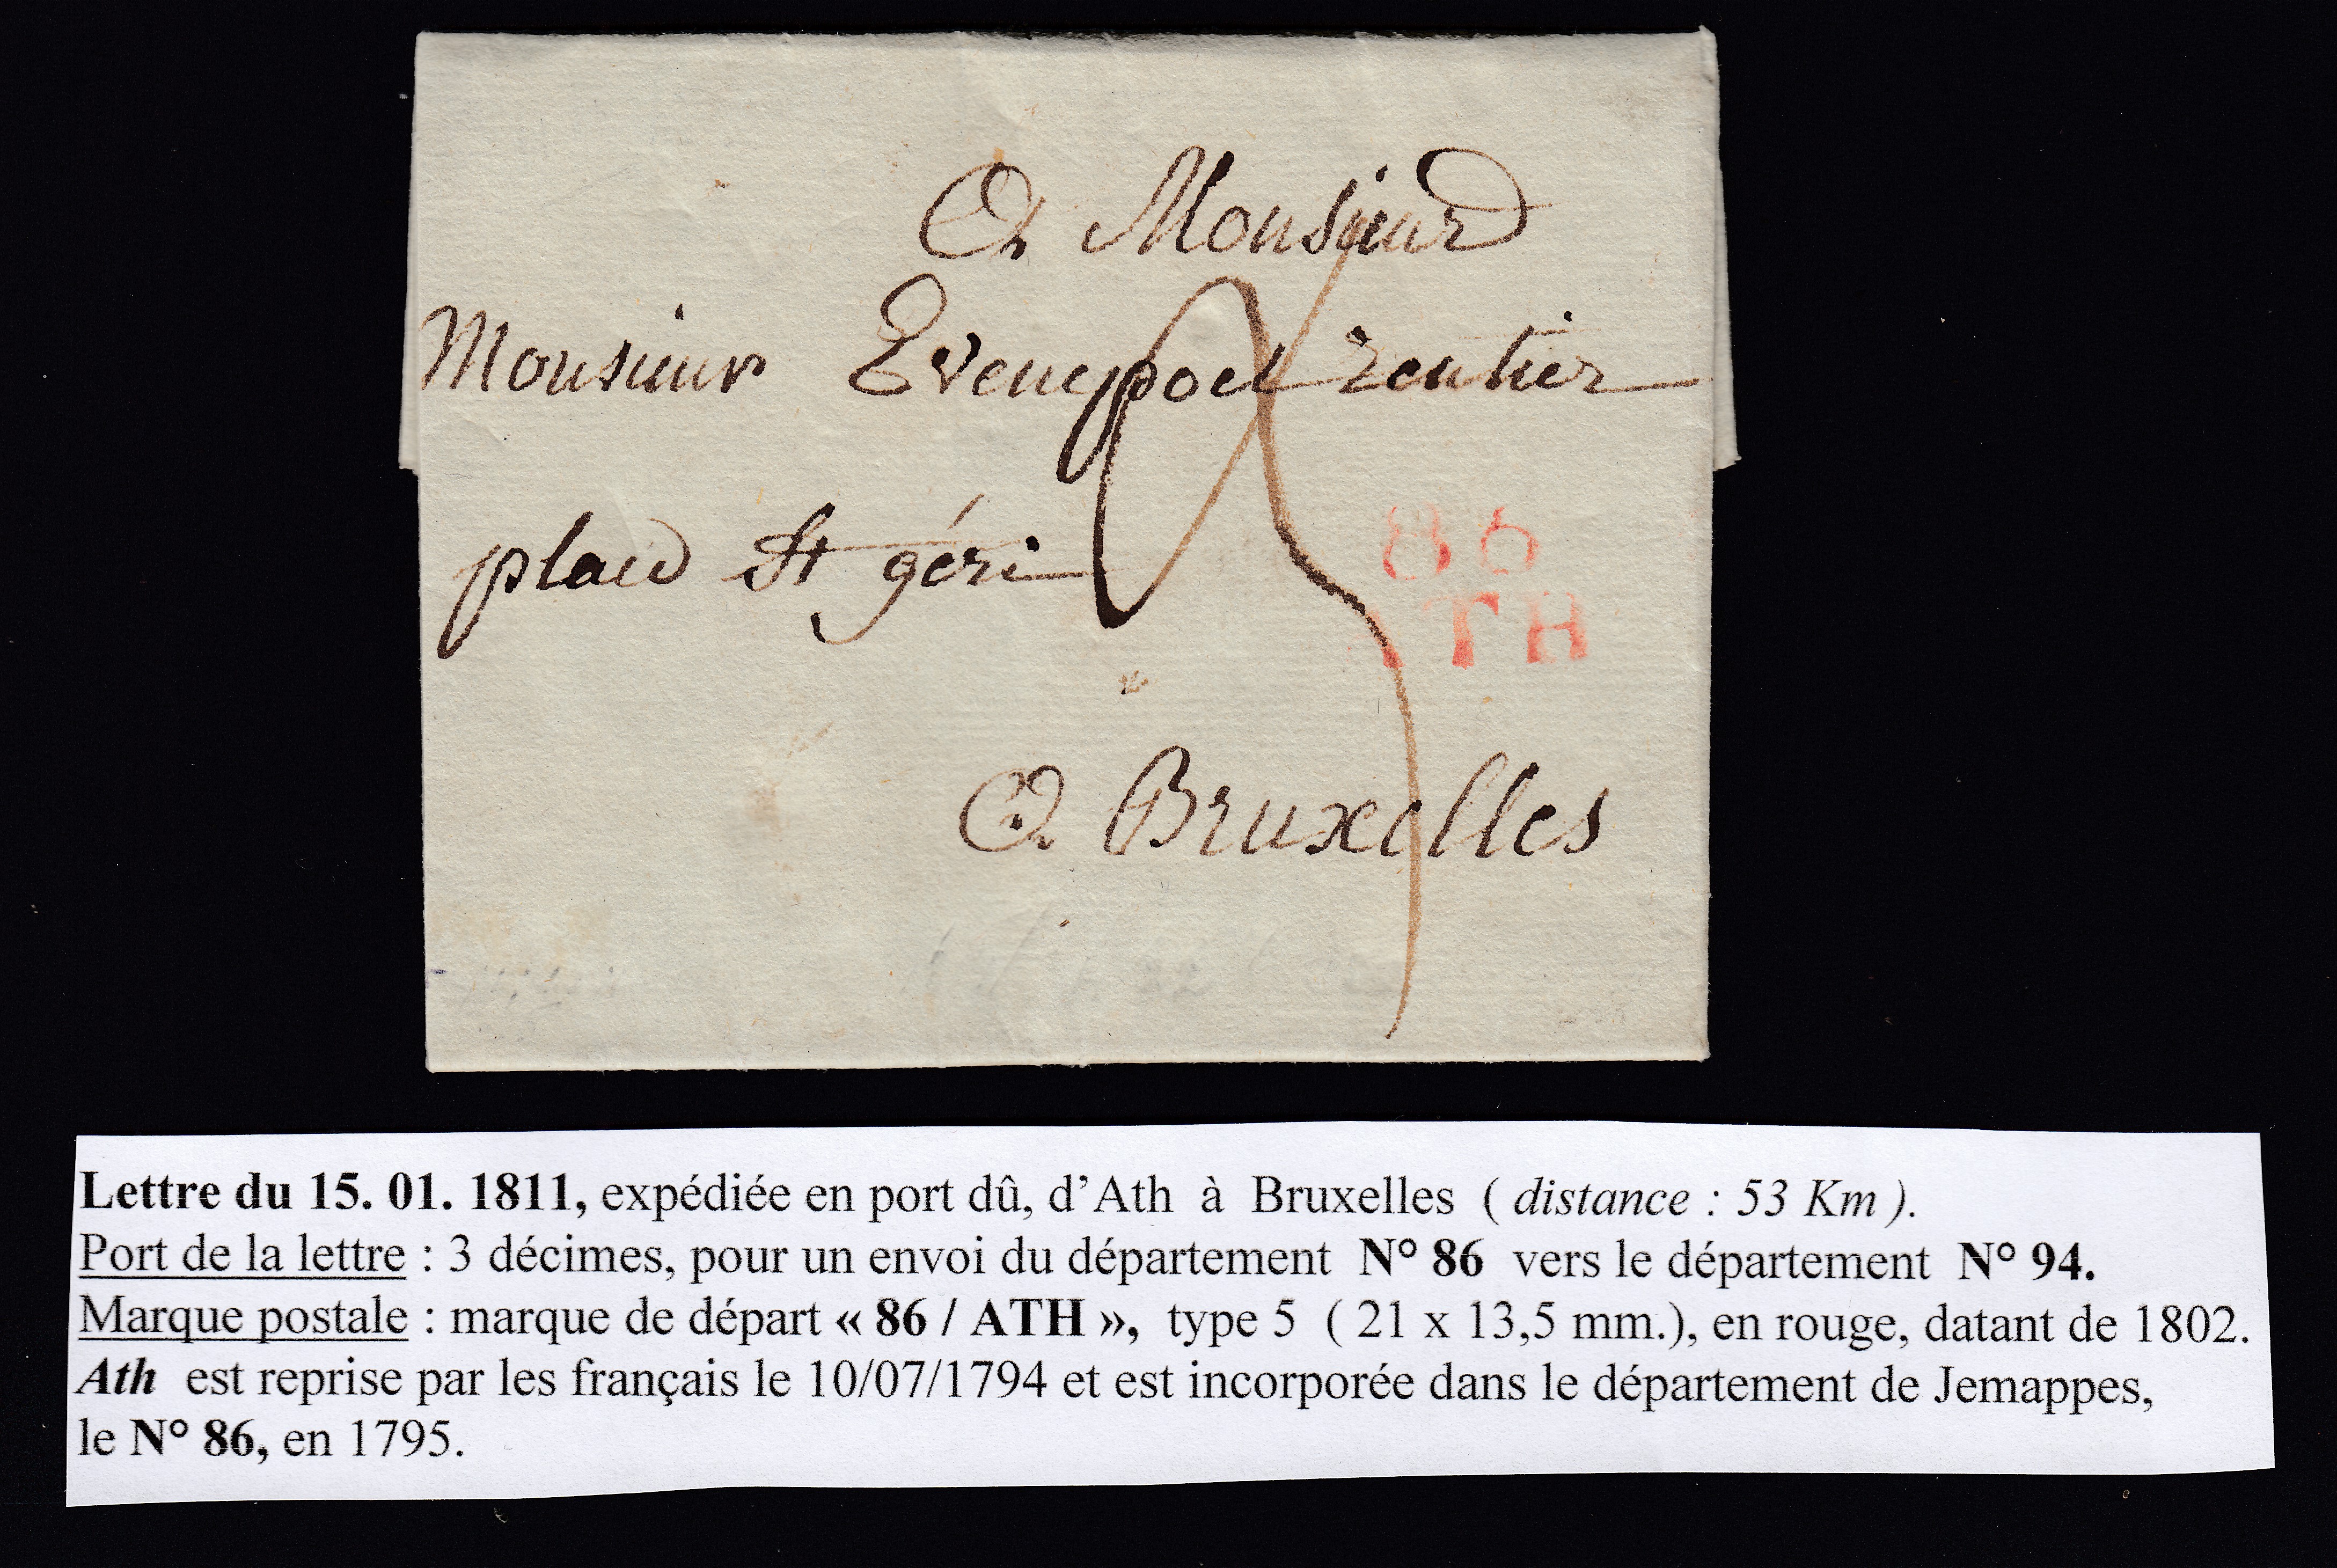 A Monsieur
Monsieur Evenepoel rentier
place St géri
86
ATH
A Bruxelles
Lettre du 15. 01. 1811, expédiée en port dû, d’Ath à Bruxelles ( distance : 53 Km ).
Port de la lettre : 3 décimes, pour un envoi du département N° 86 vers le département N° 94.
Marque postale : marque de départ « 86 / ATH », type 5 ( 21 x 13,5 mm.), en rouge, datant de 1802.
Ath est reprise par les français le 10/07/1794 et est incorporée dans le département de Jemappes,
le N° 86, en 1795.